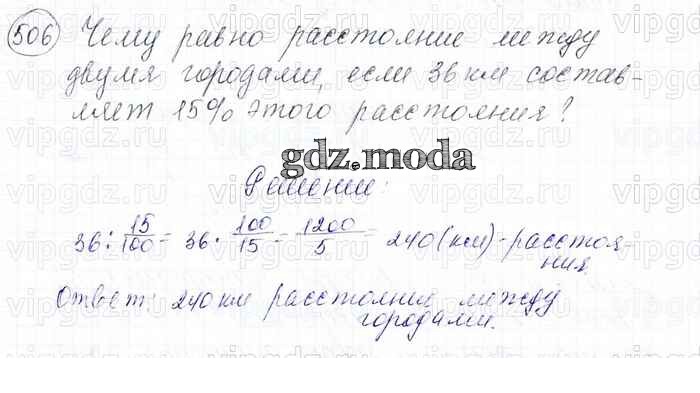 506 Чему равно расстояние между
двумя городами, если 36 км состав-
ляет 15% этого расстояния?
gdz.moda
Решение:
36 : 15/100 = 36 · 100/15 = 1200/5 = 240 (км) - расстоя-
ния
Ответ: 240 км расстояние между
городами.
vipgdz.ru